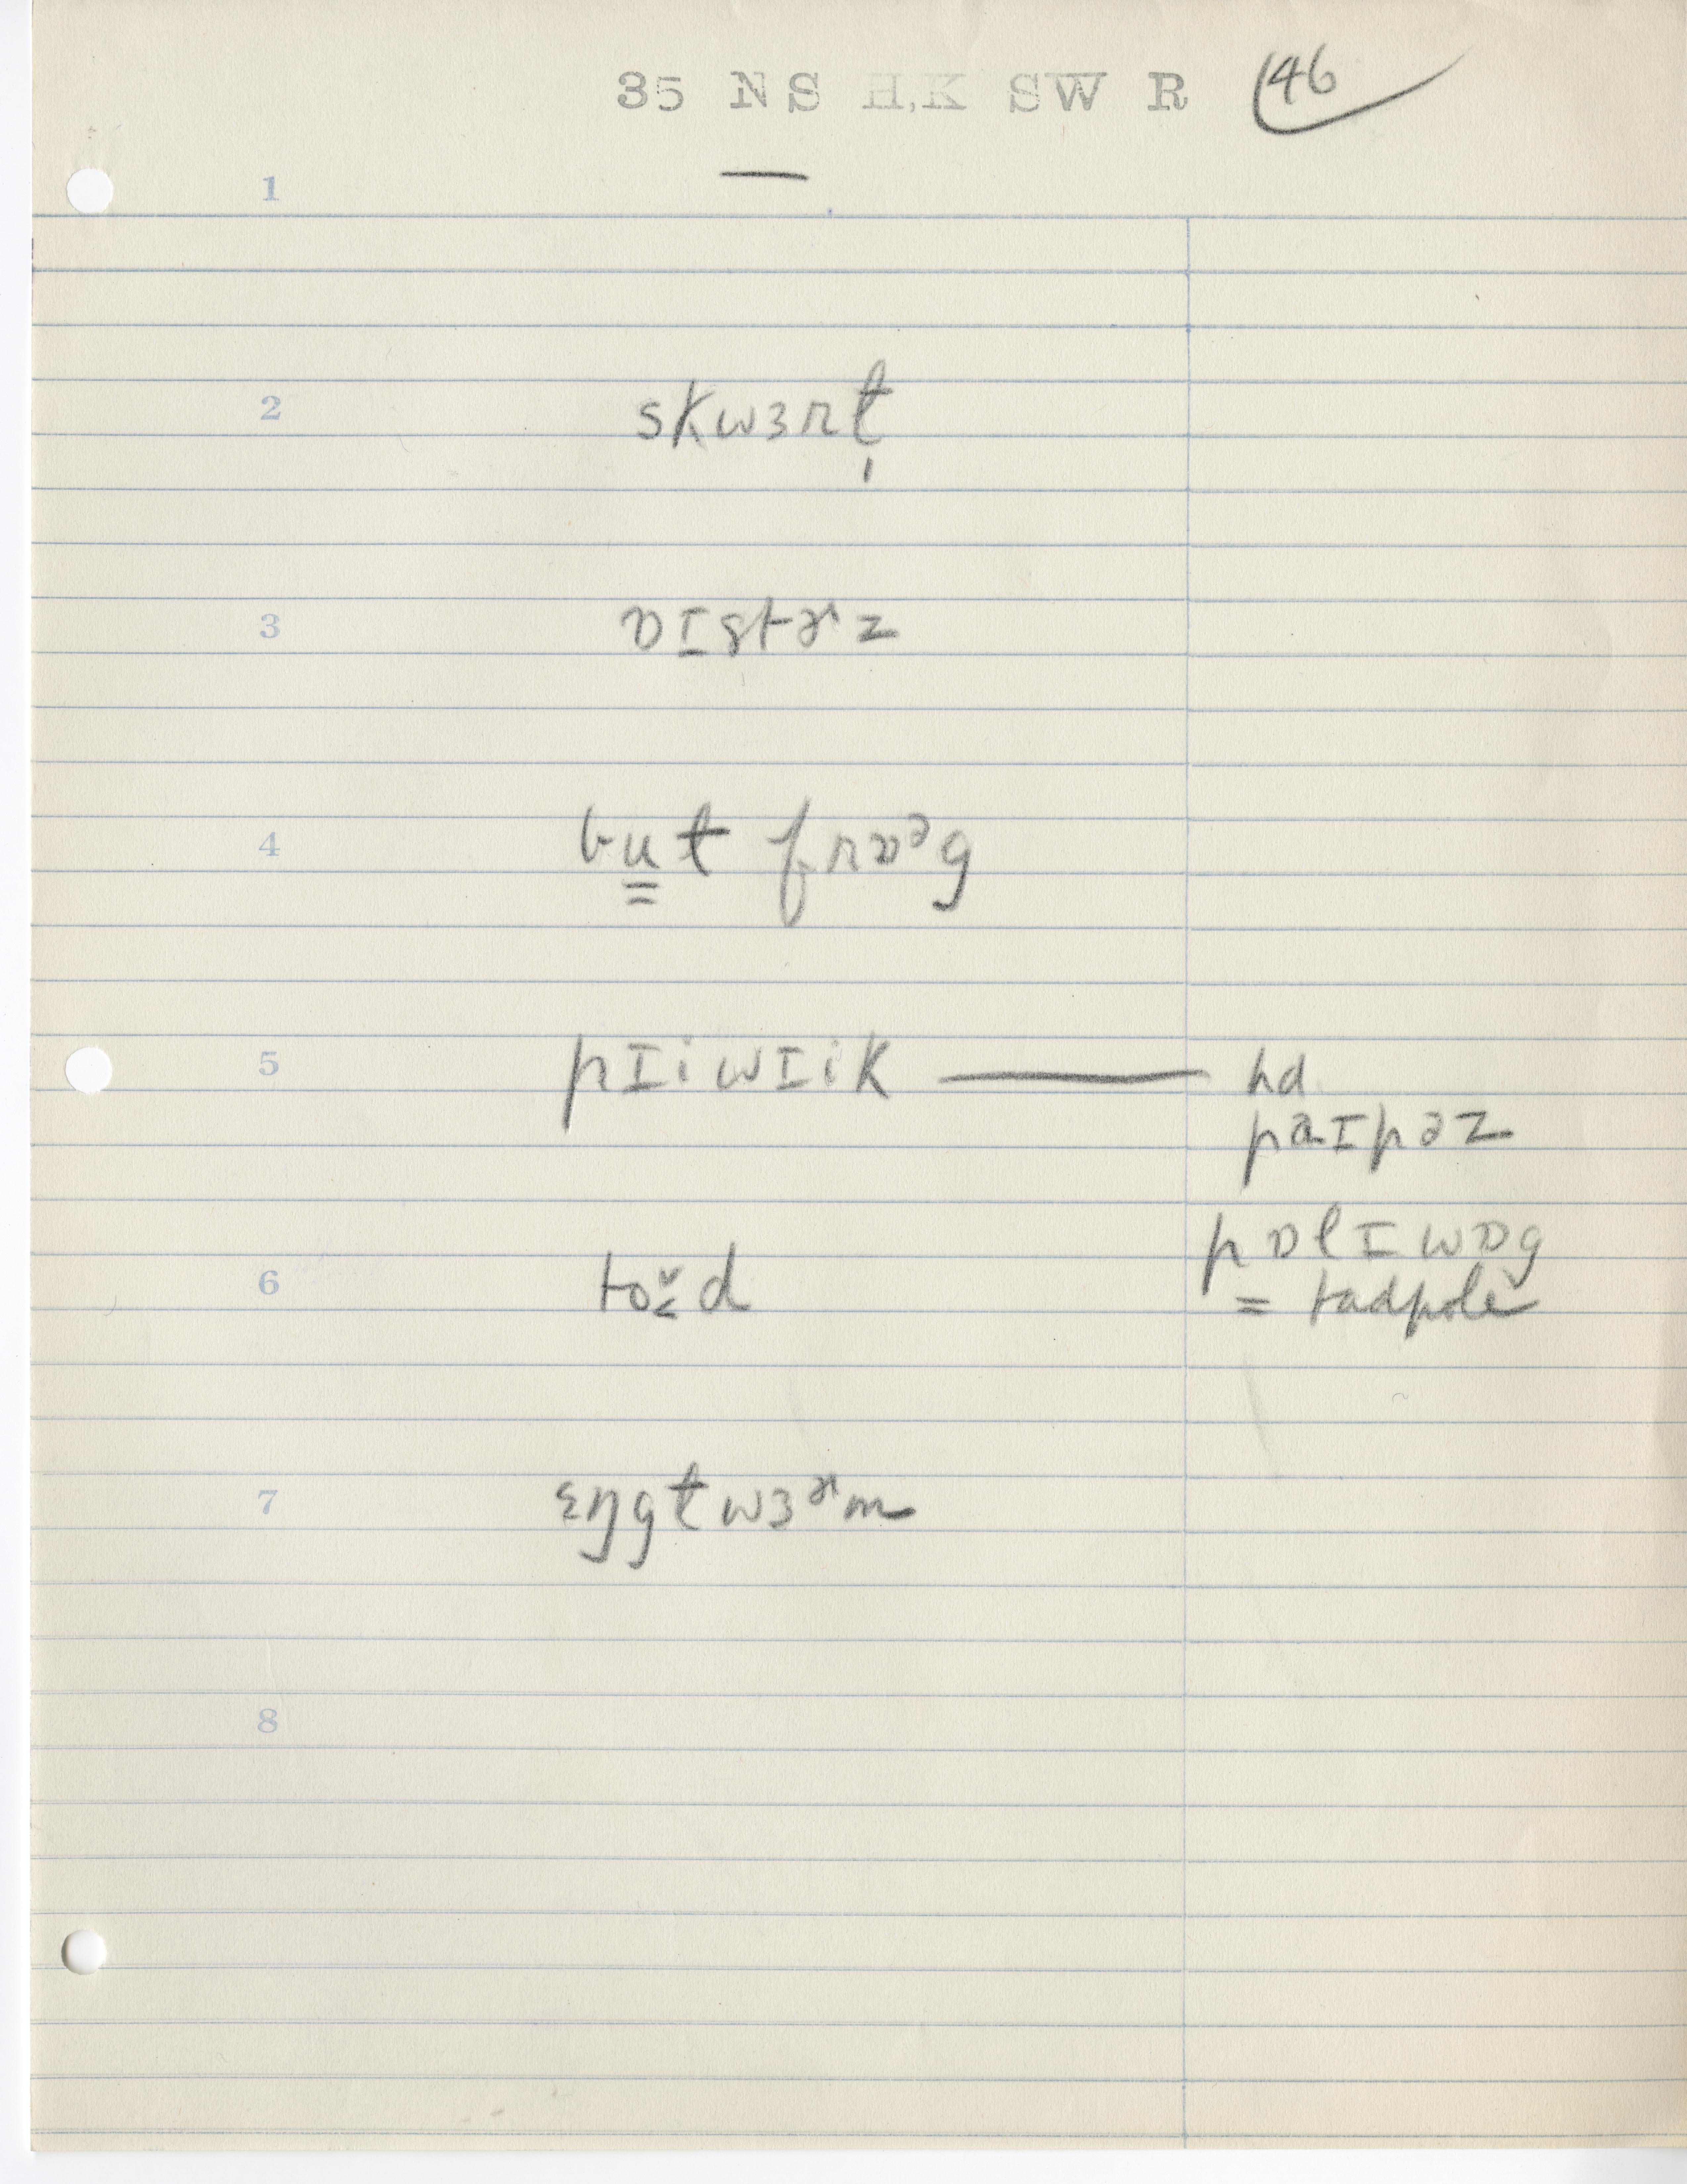 35 NS H,K SW R 46
1 —
2 skwɜrɫ̩
3 ɒɪstɚz
4 bu̳ɫ frɒᵊg
5 pɪiwɪik — hd
paɪpəz
pɒlɪwɒg
6 toᵛ̬d = tadpole
7 ɛŋgɫwɜɚm
8